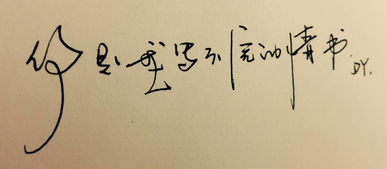 你是我写不完的情书 DY.